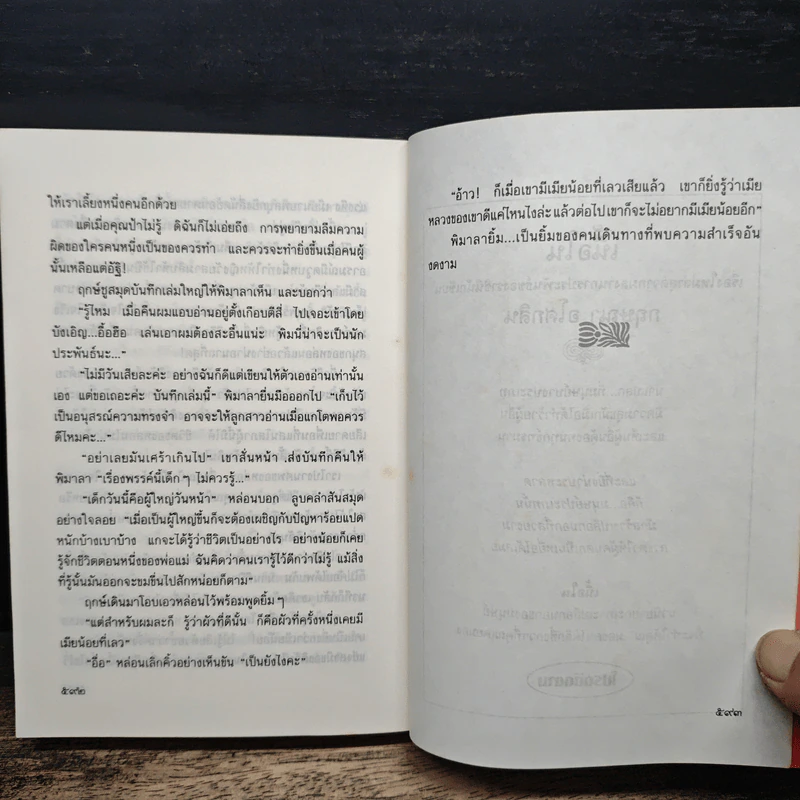 ให้เราเลี้ยงหนึ่งคนอีกด้วย
แต่เมื่อคุณป้าไม่รู้ ดิฉันก็ไม่เอ่ยถึง การพยายามลืมความ
ผิดของใครคนหนึ่งเป็นของควรทำ และควรจะทำยิ่งขึ้นเมื่อคนผู้
นั้นเหลือแต่อัฐิ!
ฤกษ์ชูสมุดบันทึกเล่มใหญ่ให้พิมาลาเห็น และบอกว่า
“รู้ไหม เมื่อคืนผมแอบอ่านอยู่ตั้งเกือบตีสี่ ไปเจอะเข้าโดย
บังเอิญ...อื้อฮือ เล่นเอาผมต้องสะอื้นแน่ะ พิมนี่น่าจะเป็นนัก
ประพันธ์นะ...”
“ไม่มีวันเสียละค่ะ อย่างฉันก็ดีแต่เขียนให้ตัวเองอ่านเท่านั้น
เอง แต่ขอเถอะค่ะ บันทึกเล่มนี้” พิมาลายื่นมือออกไป “เก็บไว้
เป็นอนุสรณ์ความทรงจำ อาจจะให้ลูกสาวอ่านเมื่อแกโตพอควร
ดีไหมคะ...”
“อย่าเลยมันเศร้าเกินไป” เขาสั่นหน้า .ส่งบันทึกคืนให้
พิมาลา “เรื่องพรรค์นี้เด็กๆ ไม่ควรรู้...”
“เด็กวันนี้คือผู้ใหญ่วันหน้า” หล่อนบอก ลูบคลำสันสมุด
อย่างใจลอย “เมื่อเป็นผู้ใหญ่ขึ้นก็จะต้องเผชิญกับปัญหาร้อยแปด
หนักบ้างเบาบ้าง แกจะได้รู้ว่าชีวิตเป็นอย่างไร อย่างน้อยก็เคย
รู้จักชีวิตตอนหนึ่งของพ่อแม่ ฉันคิดว่าคนเรารู้ไว้ดีกว่าไม่รู้ แม้สิ่ง
ที่รู้นั้นมันออกจะขมขื่นไปสักหน่อยก็ตาม”
ฤกษ์เดินมาโอบเอวหล่อนไว้พร้อมพูดยิ้มๆ
“แต่สำหรับผมละก็ รู้ว่าผัวที่ดีนั้น ก็คือผัวที่ครั้งหนึ่งเคยมี
เมียน้อยที่เลว”
“อื่อ” หล่อนเลิกคิ้วอย่างเห็นขัน “เป็นยังไงคะ”
๕๙๒
“อ้าว! ก็เมื่อเขามีเมียน้อยที่เลวเสียแล้ว เขาก็ยิ่งรู้ว่าเมีย
หลวงของเขาดีแค่ไหนไงล่ะ แล้วต่อไปเขาก็จะไม่อยากมีเมียน้อยอีก”
พิมาลายิ้ม...เป็นยิ้มของคนเดินทางที่พบความสำเร็จอัน
งดงาม
๕๙๓